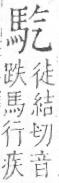 徒結切音
跌馬行疾